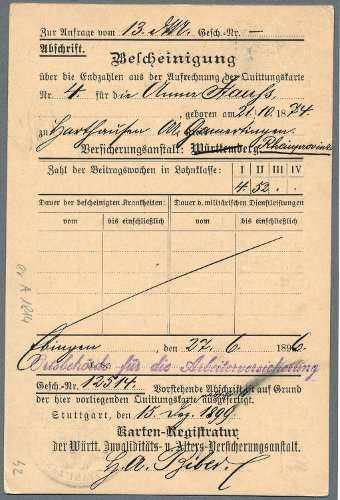 Zur Anfrage vom 13. Gesch.-Nr. —
Abschrift.
Bescheinigung
über die Endzahlen aus der Aufrechnung der Quittungskarte
Nr. 4. für die Anna Stauss,
geboren am 21/10 1874.
zu Harthausen OA. Gammertingen.
Versicherungsanstalt: Württemberg. Rheinprovinz
Zahl der Beitragswochen in Lohnklasse: I II III IV
4. 52.
Dauer der bescheinigten Krankheiten: Dauer d. bescheinigten militärischen Dienstleistungen
vom bis einschließlich vom bis einschließlich
Ebingen, den 27. 6. 1896
Ortsbehörde für die Arbeiterversicherung
Gesch.-Nr. 12514. Vorstehende Abschrift ist auf Grund
der hier vorliegenden Quittungskarte ausgefertigt.
Stuttgart, den 15. Dez. 1899.
Karten-Registratur
der Württ. Invaliditäts- u. Alters-Versicherungsanstalt.